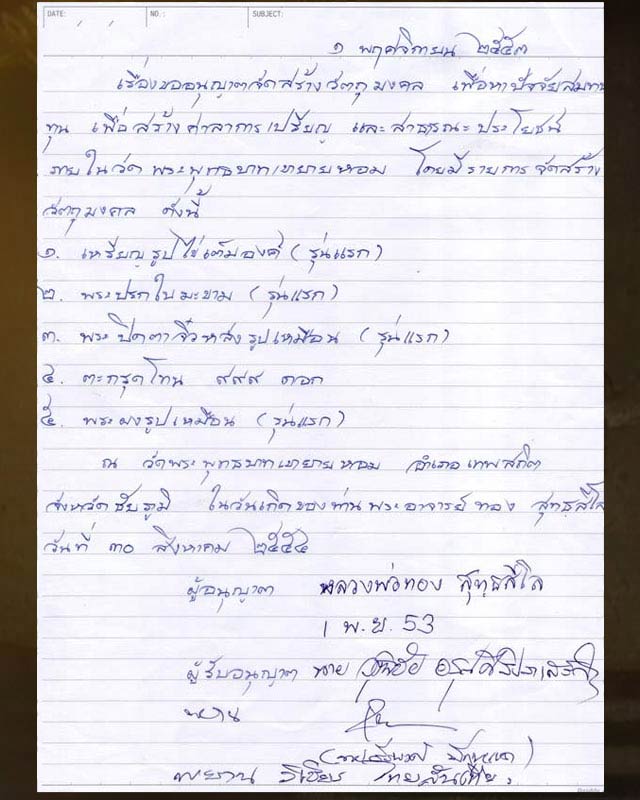 DATE: / / NO.: SUBJECT:
๑ พฤศจิกายน ๒๕๕๓
เรื่องขออนุญาตจัดสร้างวัตถุมงคล เพื่อหาปัจจัยสมทบ
ทุน เพื่อสร้างศาลาการเปรียญ และสาธารณะประโยชน์
ภายในวัดพระพุทธบาทเขายายหอม โดยมีรายการจัดสร้าง
วัตถุมงคล ดังนี้
๑. เหรียญรูปไข่เต็มองค์ (รุ่นแรก)
๒. พระปรกใบมะขาม (รุ่นแรก)
๓. พระปิดตาจิ๋วหลังรูปเหมือน (รุ่นแรก)
๔. ตะกรุดโทน ๙๙๙ ดอก
๕. พระผงรูปเหมือน (รุ่นแรก)
ณ วัดพระพุทธบาทเขายายหอม อำเภอเทพสถิต
จังหวัดชัยภูมิ ในวันเกิดของท่านพระอาจารย์ ทอง สุทธสีโล
วันที่ ๓๐ สิงหาคม ๒๕๕๔
ผู้อนุญาต หลวงพ่อทอง สุทธสีโล
1 พ.ย. 53
ผู้รับอนุญาต นาย
พยาน
พยาน วิเชียร